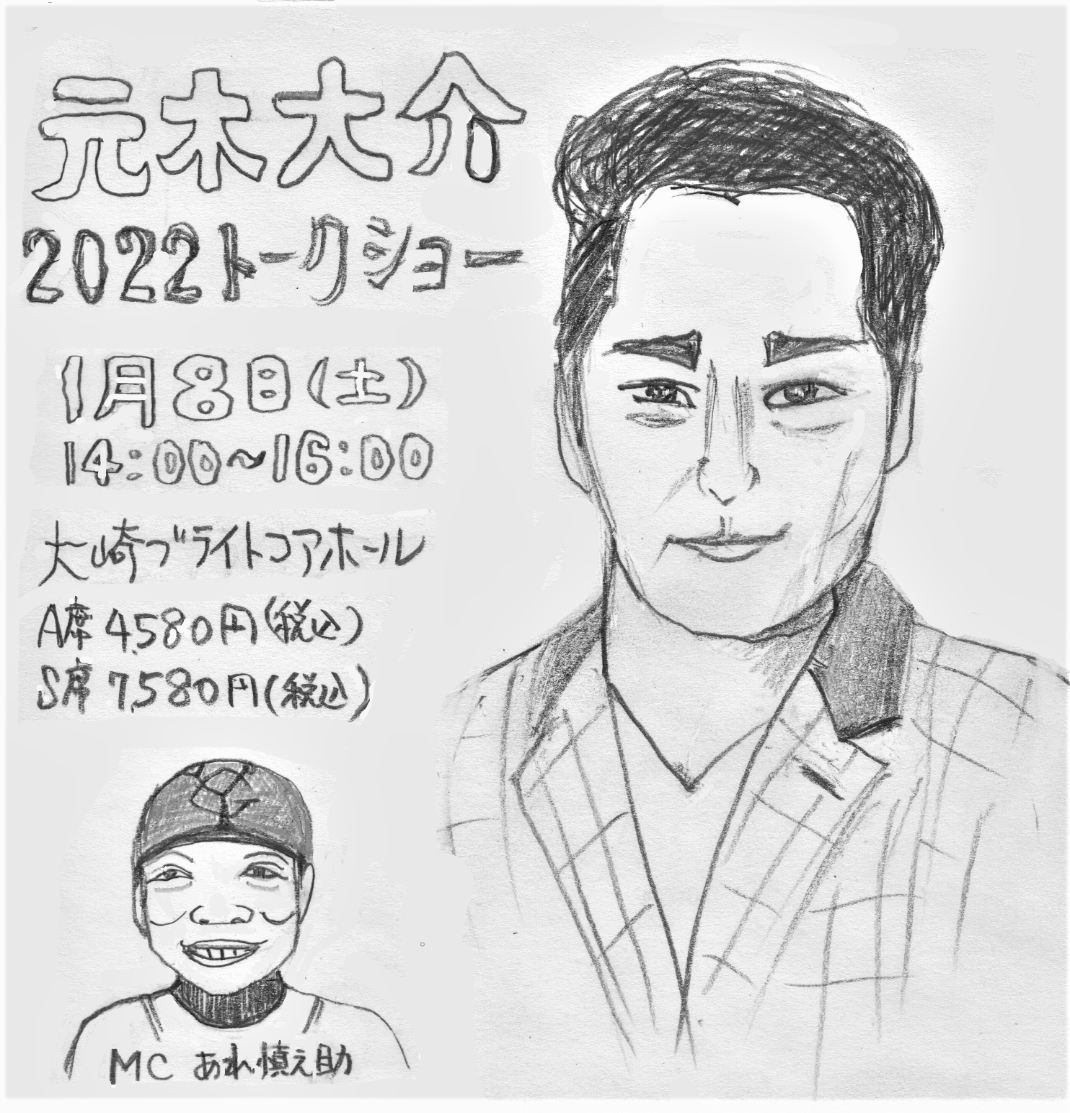 元木大介
2022トークショー
1月8日(土)
14:00~16:00
大崎ブライトコアホール
A席 4,580円(税込)
S席 7,580円(税込)
YG
MC あれ慎之助